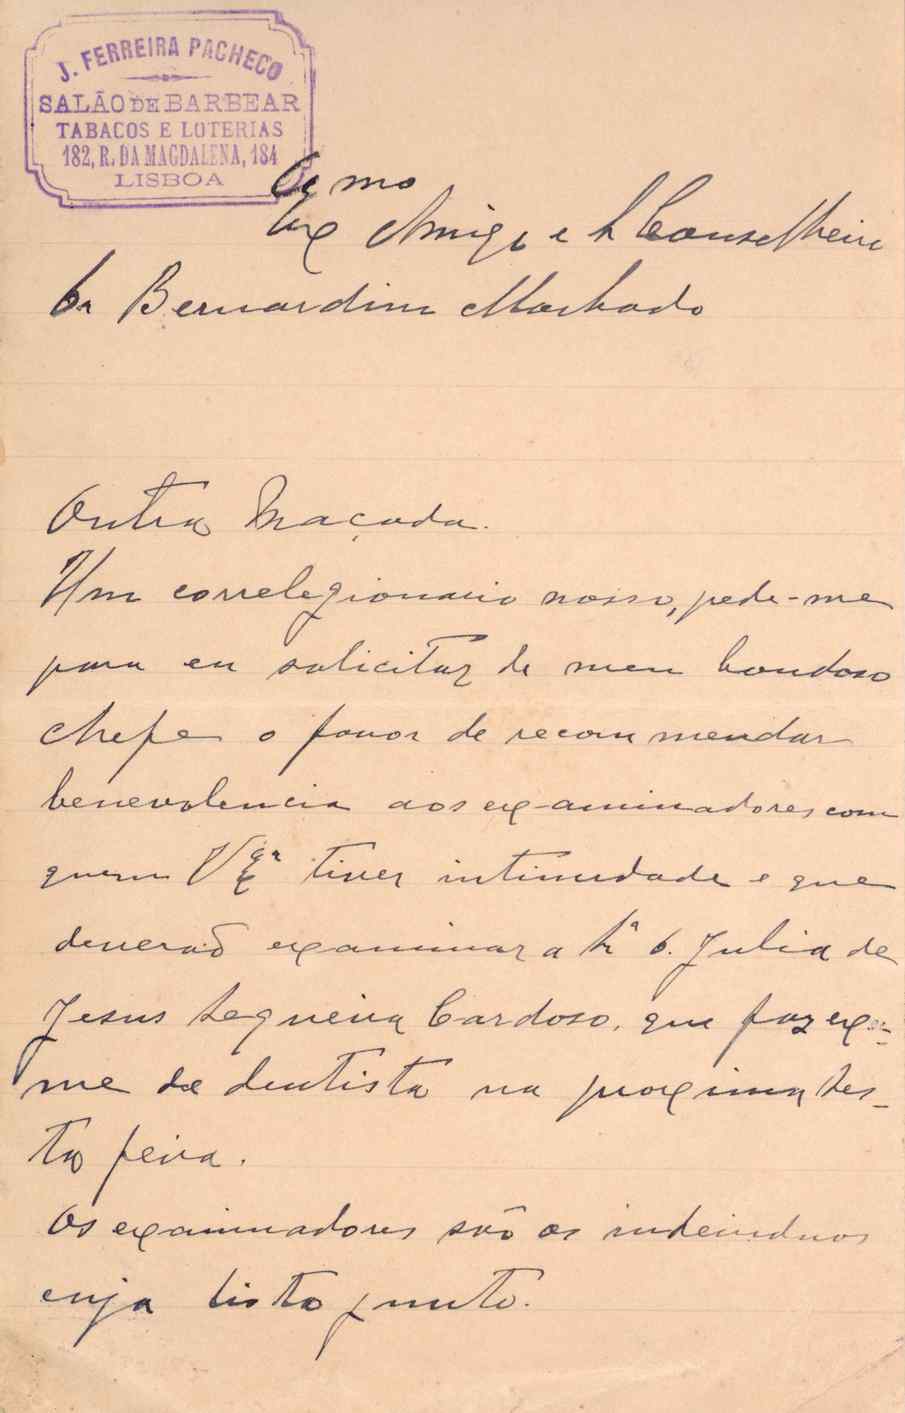 J. FERREIRA PACHECO
SALÃO DE BARBEAR
TABACOS E LOTERIAS
182, R. DA MAGDALENA, 184
LISBOA
Ex mo
Amigo e Sr Conselheiro
Dr Bernardino Machado
Outra Maçada.
Um correlegionario nosso, pede-me
para eu solicitar de meu bondoso
chefe o favor de recommendar
benevolencia aos examinadores com
quem V Exª tiver intimidade e que
deverão examinar a Srª D. Julia de
Jesus Sequeira Cardoso, que faz exa-
me de dentista na proxima Ses-
ta feira.
Os examinadores são os individuos
cuja lista junto.